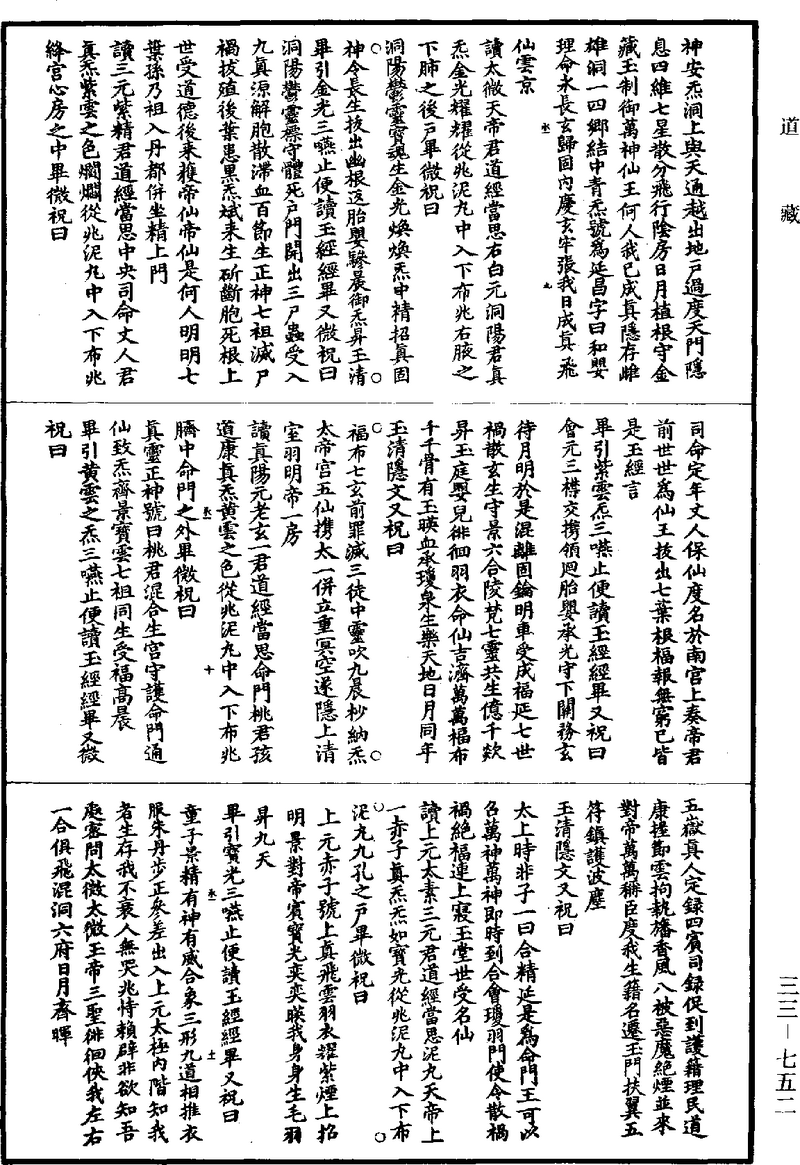 道藏
神安炁洞上與天通越出地戶過度天門隱
息四維七星散分飛行陰房日月植根守金
藏玉制御萬神仙王何人我已成真隱存雌
雄洞一四鄉結中青炁號為延昌字曰和嬰
理命永長玄歸固内慶玄牢張我日成真飛
仙雲京
讀太微天帝君道經當思右白元洞陽君真
炁金光耀耀從兆泥丸中入下布兆右腋之
下肺之後戶畢微祝曰
洞陽鬱靈寶魂生金光煥煥炁中精招真固
神令長生拔出幽根返胎嬰驂晨御炁昇玉清
畢引金光三嚥止便讀玉經經畢又微祝曰
洞陽鬱靈標守體死戶門開出三尸蟲受入
九真源解胞散滯血百節生正神七祖滅尸
禍拔殖後葉患黑炁斌来生斫斷胞死根上
世受道德後来獲帝仙帝仙是何人明明七
葉孫乃祖入丹都併坐精上門
讀三元紫精君道經當思中央司命丈人君
真炁紫雲之色爛爛從兆泥丸中入下布兆
絳宮心房之中畢微祝曰
司命定年丈人保仙度名於南宮上奏帝君
前世世為仙王拔出七葉根福報無窮已皆
是玉經言
畢引紫雲炁三嚥止便讀玉經經畢又祝曰
會元三襟交携領迴胎嬰承光守下關務玄
待月明於是混離固鑰明車受成福延七世
禍散玄生守景六合陵梵七靈共生億千欻
昇玉庭嬰兒徘徊羽衣命仙吉濟萬萬福布
千千骨有玉瑛血承瓊泉生樂天地日月同年
玉清隱文又祝曰
福布七玄前罪滅三徒中靈吹九晨杪納炁
太帝宮五仙携太一併立重冥空遂隱上清
室羽明帝一房
讀真陽元老玄一君道經當思命門桃君孩
道康真炁黄雲之色從兆泥丸中入下布兆
臍中命門之外畢微祝曰
真靈正神號曰桃君混合生宮守護命門通
仙致炁齊景寶雲七祖同生受福高晨
畢引黄雲之炁三嚥止便讀玉經經畢又微
祝曰
五嶽真人定録四賓司録促到護籍理民道
康撞節雲拘執旛香風八被惡魔絶煙並来
對帝萬萬稱臣度我生籍名遷玉門扶翼五
符鎮護波塵
玉清隱文又祝曰
太上時非子一曰合精延是為命門王可以
召萬神萬神即時到合會瓊羽門使令散禍
禍絶福連上寢玉堂世受名仙
讀上元太素三元君道經當思泥丸天帝上
一赤子真炁炁如寶光從兆泥丸中入下布
泥丸九孔之戶畢微祝曰
上元赤子號上真飛雲羽衣耀紫煙上招
明景對帝賓寶光奕奕暎我身身生毛羽
昇九天
畢引寶光三嚥止便讀玉經經畢又祝曰
童子景精有神有威合象三形九道相推衣
服朱丹步正參差出入上元太極内階知我
者生存我不衰人無哭兆恃賴辟非欲知吾
處密問太微太微玉帝三聖徘徊俠我左右
一合俱飛混洞六府日月齊暉
三三－七五二